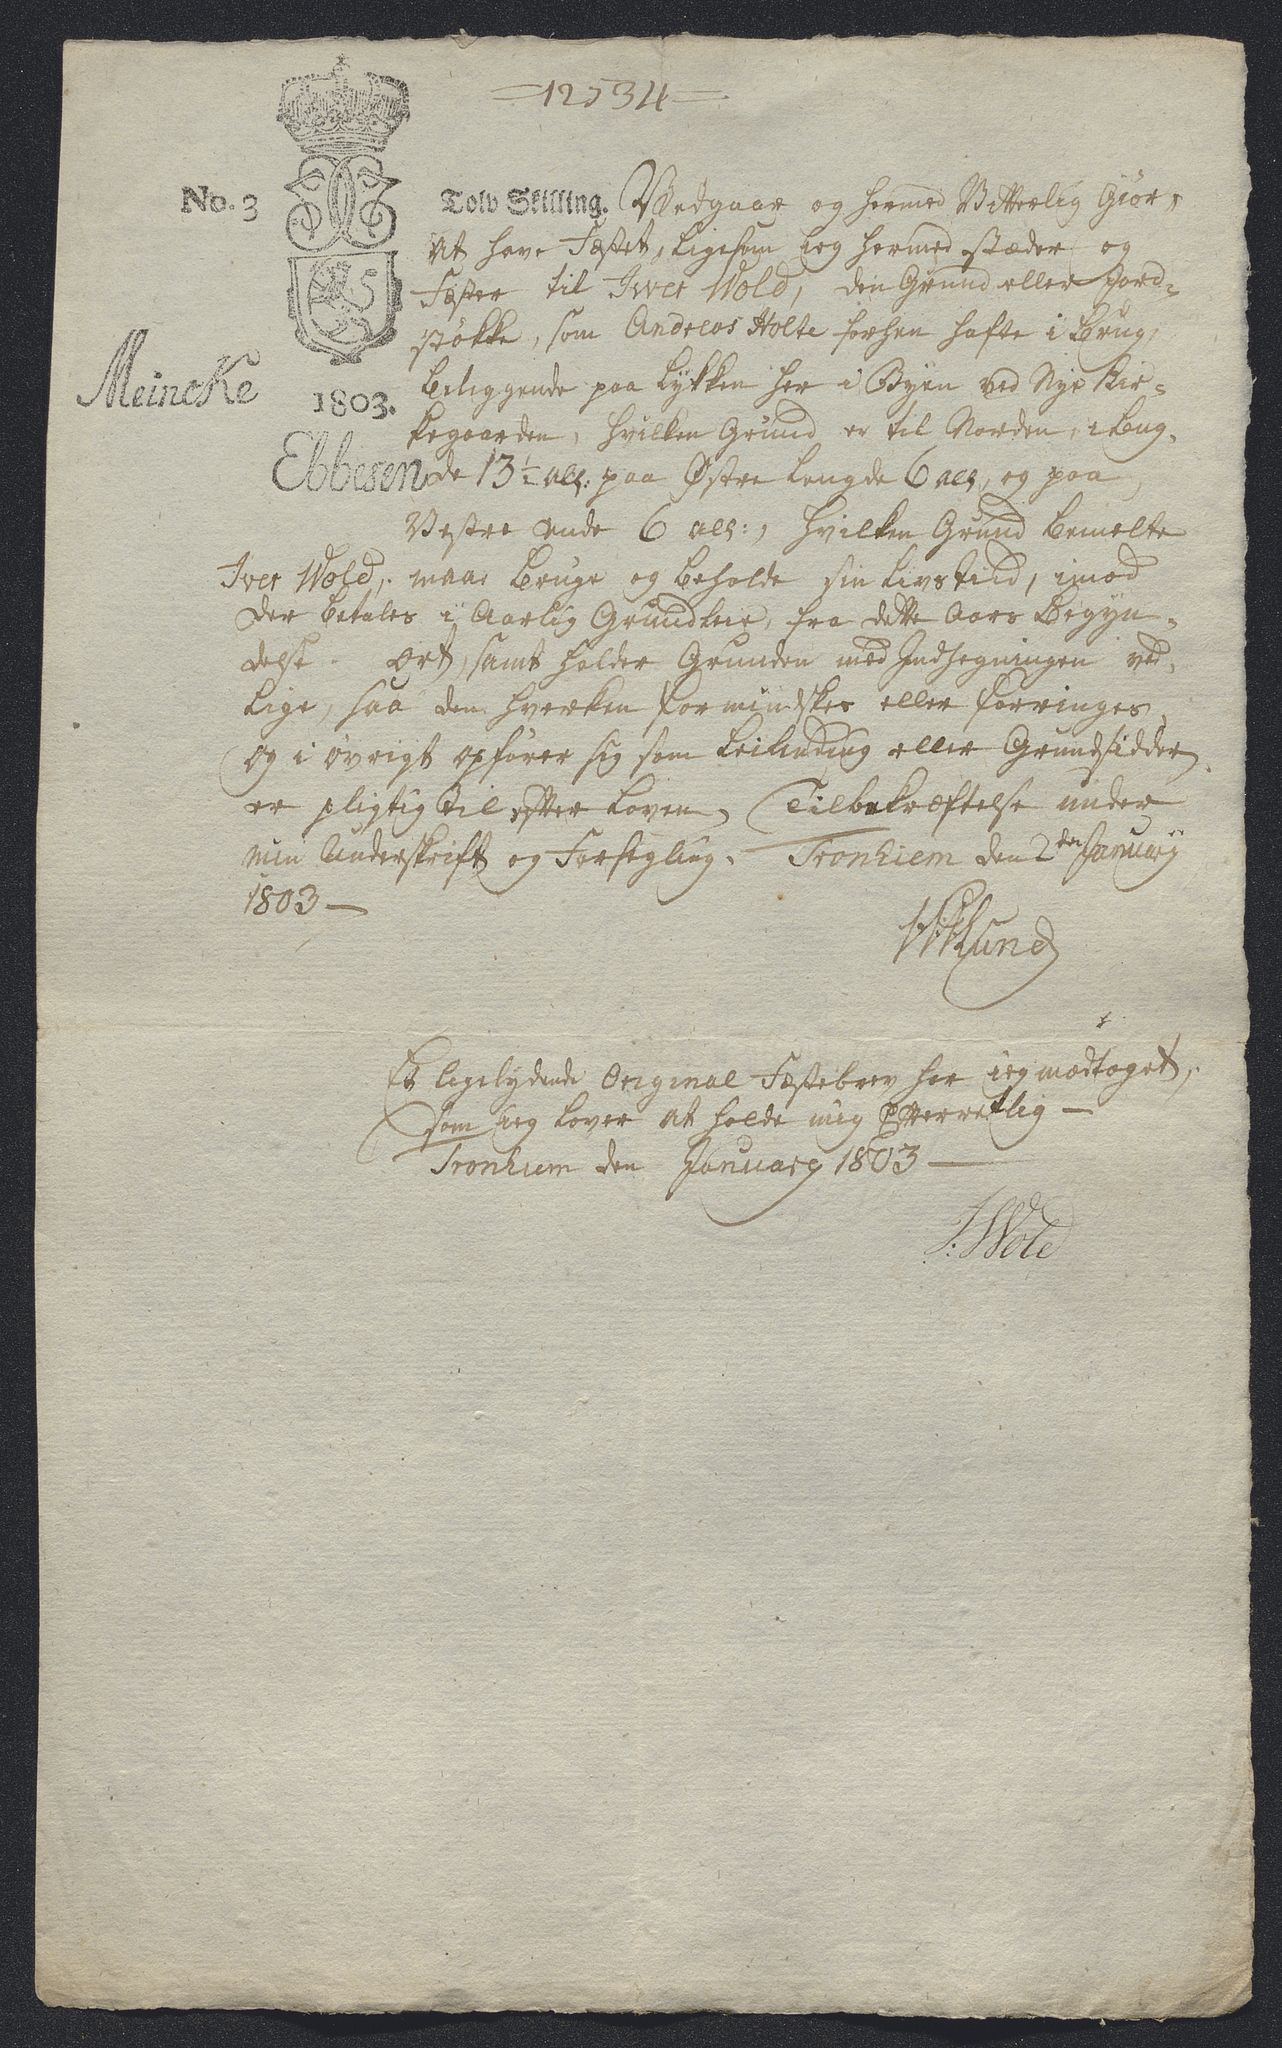 =12534=
No. 3
Tolv Skilling. Vedgaar og hermed Vitterlig Giør,
At have Fæstet, ligesom ieg hermed stæder og
Fæster til Iver Wold, den Grund eller Jord-
støkke, som Andreas Holte forhen hafte i Brug,
beliggende paa Løkken her i Byen ved Nye Kir-
kegaarden, hvilken Grund er til Norden, i Leng-
de 13½ all: paa Østre Lengde 6 all, og paa
Vestre ende 6 all:, hvilken Grund bemelte
Iver Wold, maae bruge og beholde sin Livstiid, imod
der betales i Aarlig Grundleie, fra dette Aars Begyn-
delse ort, samt holder Grunden med Indhegningen ved-
lige, saa den hverken formindskes eller forringes,
og i øvrigt opfører sig som Leilending eller Grundsidder
er pligtig til efter Loven, Til bekræftelse under
min Underskrift og Forsegling. Tronhiem den 2den Januarÿ
1803 —
Meincke
1803.
Ebbesen
Lund
Et ligelydende Original Fæstebrev har ieg modtaget,
som ieg lover at holde mig Efterretlig —
Tronhiem den Januarÿ 1803 —
I: Wold